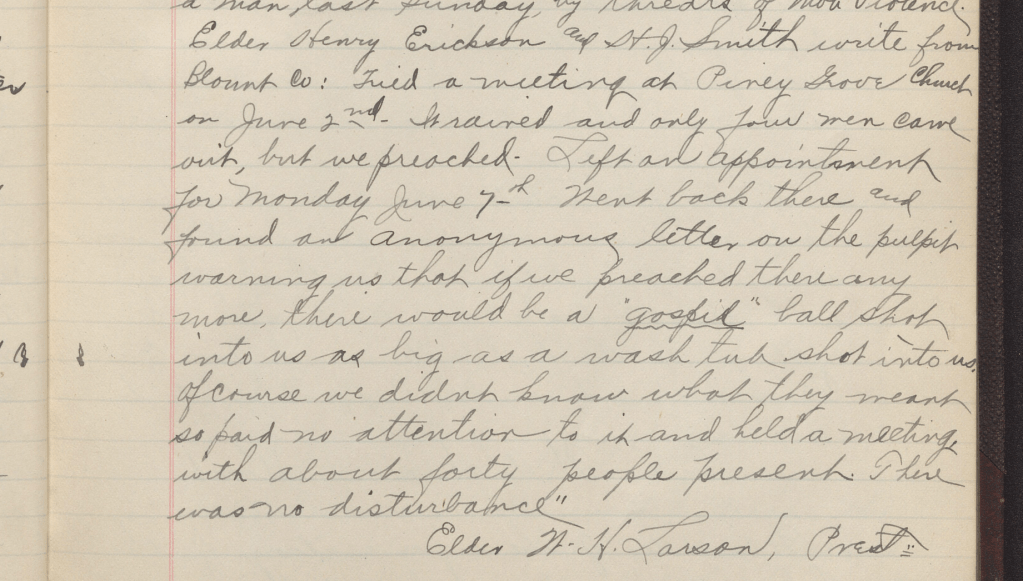 a man, last Sunday, by threats of mob violence.
Elder Henry Erickson and St. J. Smith write from
Blount Co: Tried a meeting at Piney Grove Church
on June 2nd. It rained and only four men came
out, but we preached. Left an appointment
for Monday June 7th Went back there and
found an anonymous letter on the pulpit
warning us that if we preached there any
more, there would be a "gospil" ball shot
into us as big as a wash tub shot into us.
Of course we didnt know what they meant
so paid no attention to it and held a meeting,
with about forty people present. There
was no disturbance"
Elder W. H. Larson, Prest.